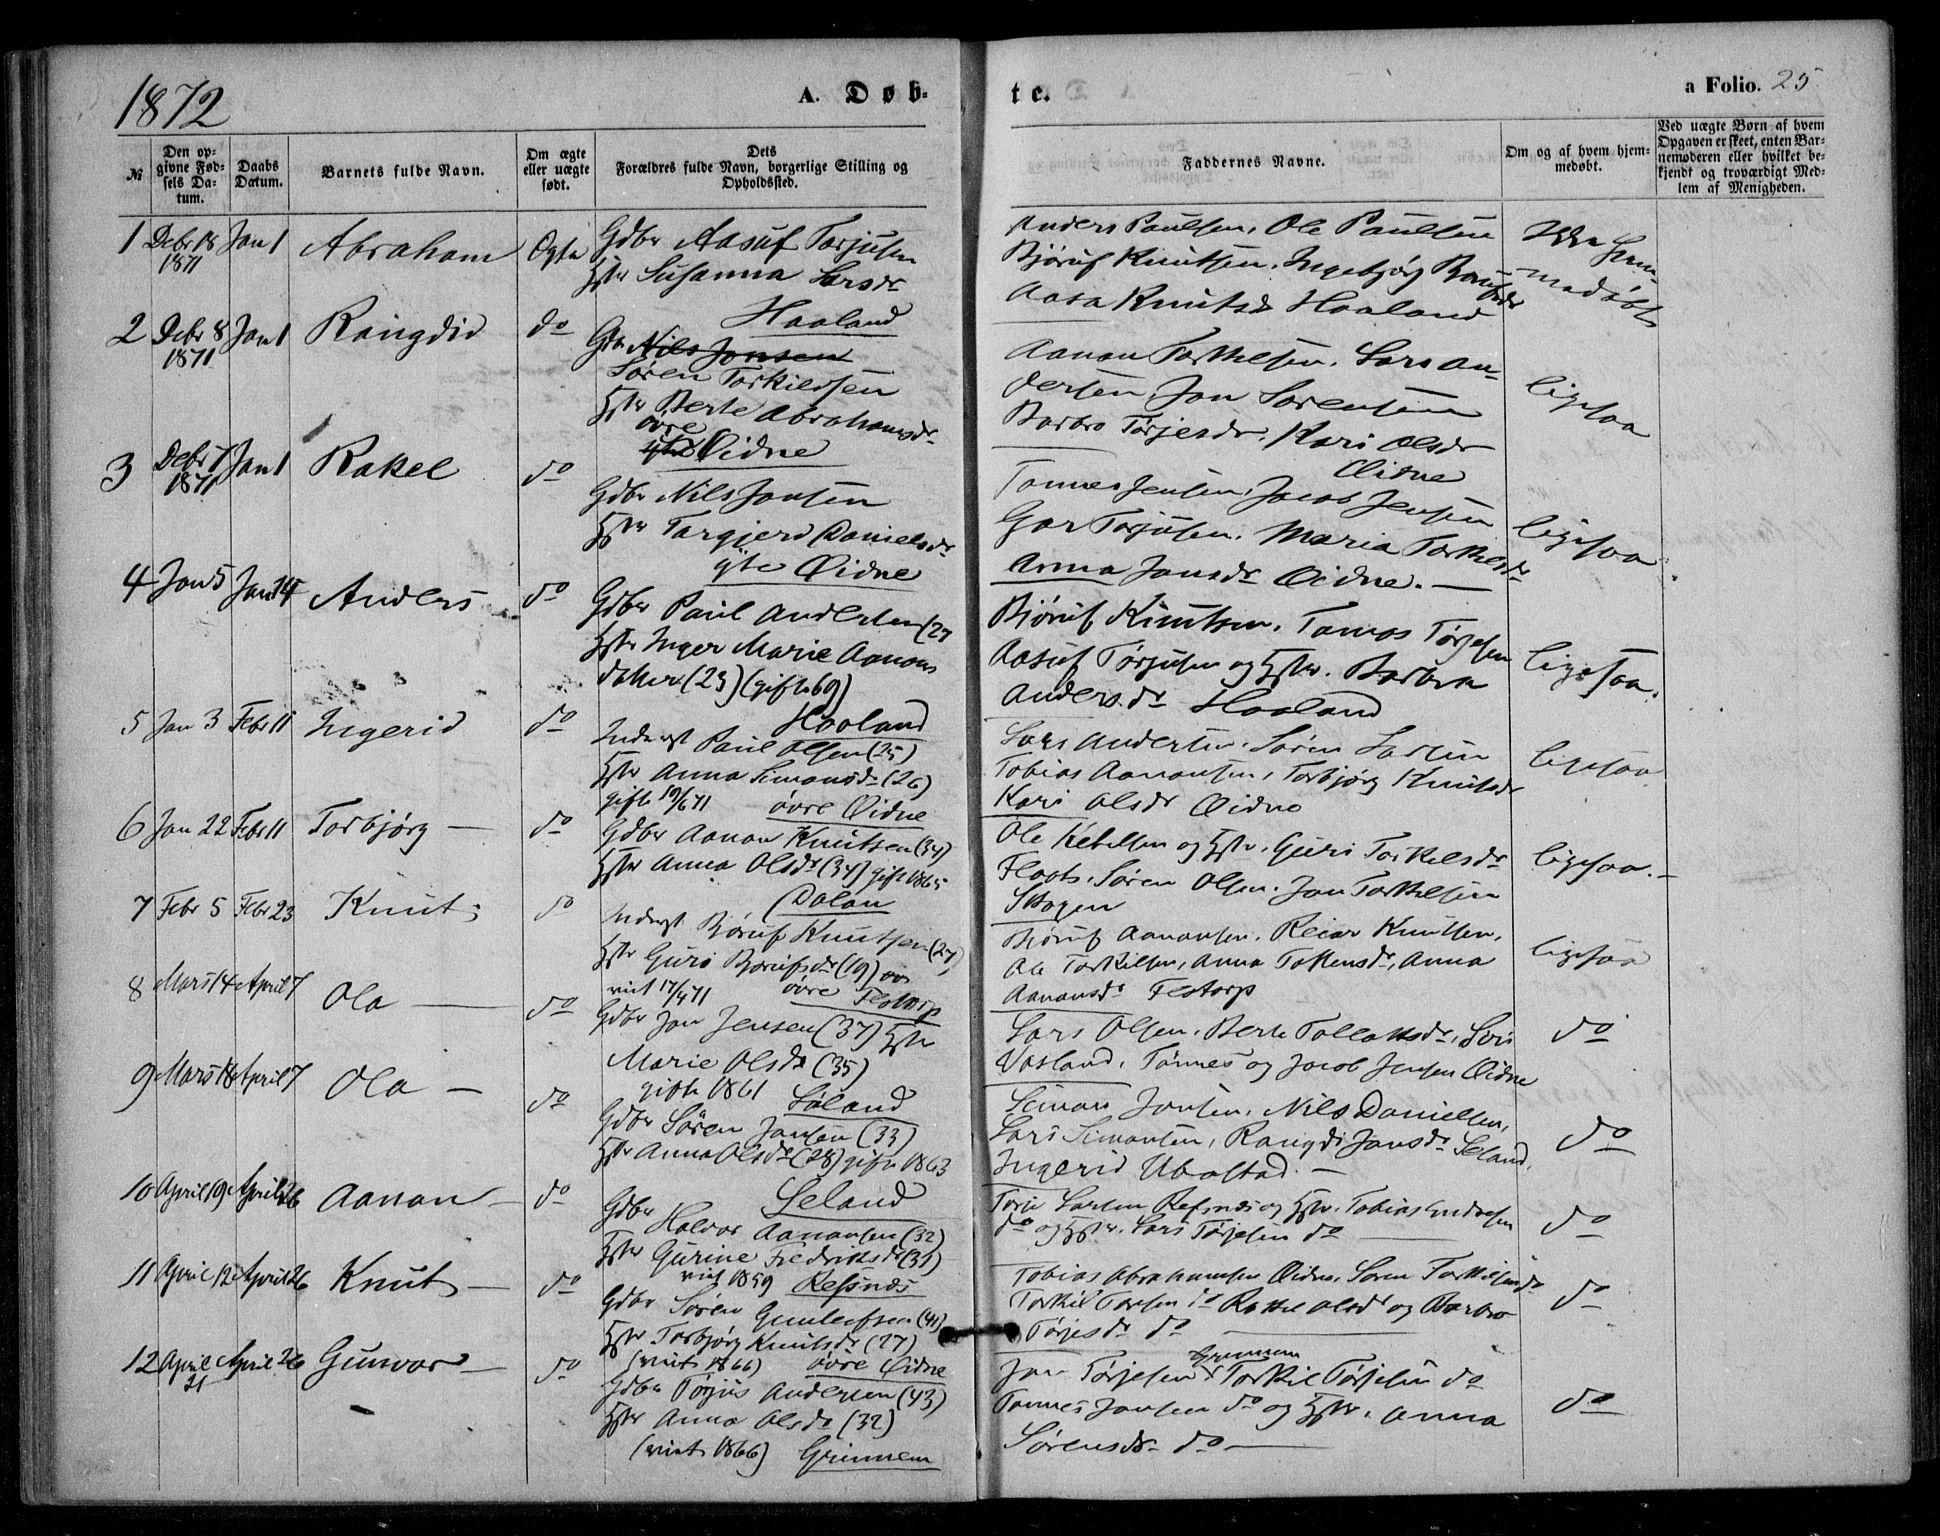 1872
A. Døb-
te.
a Folio. 25
№
Den op-
givne Fød-
sels Da-
tum.
Daabs
Datum.
Barnets fulde Navn.
Om ægte
eller uægte
født.
Dets
Forældres fulde Navn, borgerlige Stilling og
Opholdssted.
Faddernes Navne.
Om og af hvem hjem-
medøbt.
Ved uægte Børn af hvem
Opgaven er skeet, enten Bar-
nemoderen eller hvilket be-
kjendt og troværdigt Med-
lem af Menigheden.
1 Debr 18 1871 Jan 1 Abraham Ægte
Gdbr Aasuf Torjusen
Hstr Susanna Larsdr
Haaland
Anders Paulsen, Ole Paulsen
Bjøruf Knutsen, Ingebjørg
Aasa Knutsdr Haaland
medøbt
2 Debr 8 1871 Jan 1 Rangdid do
Gbr Nils Jonsen
Søren Torkildsen
Hstr Berte Abrahamsdr
øvre
Øidne
Aanon Torkelsen, Lars An-
dersen Jon Sørensen
Barbro Tørjesdr, Kari Olsdr
Øidne
ligesaa
3 Debr 7 1871 Jan 1 Rakel do
Gdbr Nils Jonsen
Hstr Torgjerd Danielsdr
yte Øidne
Tonnes Jensen, Jacob Jensen
Torjusen, Maria Torkelsdr
Anna Jonsdr Øidne. —
ligesaa
4 Jan 5 Jan 14 Anders do
Gdbr Paul Andersen (27
Hstr Inger Marie Aanons
datter (23) (gift 69)
Haaland
Bjøruf Knutsen, Tørjesen
Aasuf Tørjusen og Hstr. Barbra
Andersdr Haaland
ligesaa.
5 Jan 3 Febr 11 Ingerid do
Inderst Paul Olsen (25)
Hstr Anna Simonsdr (26)
gift 19/6 71 øvre Øidne
Lars Andersen, Søren Larsen
Tobias Aanonsen, Torbjørg Knutsdr
Kari Olsdr Øidne
ligesaa
6 Jan 22 Febr 11 Torbjørg — do
Gdbr Aanon Knutsen (34)
Hstr Anna Olsdr (34) gift 1865
Dalan
Ole Ketelsen og Hstr. Guri Torkelsdr
Søren Olsen. Jon Torkelsen
Skogen
ligesaa. —
7 Febr 5 Febr 23 Knut do
Inderst Bjøruf Knutsen (27)
Hstr Guro Bjørufsdr (19)
viet 17/4 71 øvre Flottorp
Bjøruf Aanonsen. Reiar Knutsen,
Ole Torkilsen, Anna, Anna
Aanonsdr Flottorp
ligesaa
8 Mars 14 April 7 Ola — do
Gdbr Jon Jensen (37) Hstr
Marie Olsdr (35)
gift 1861 Søland
Lars Olsen, Berte Tollaksdr, Siri
Vasland, Tønnes og Jacob Jensen Øidne
do
9 Mars 18 April 7 Ola — do
Gdbr Søren Jonsen (33)
Hstr Anna Olsdr (28) gift 1863
Seland
Simon Jonsen, Nils Danielsen,
Lars Simonsen, Rangdi Jonsdr Seland,
Ingerid Ubostad. —
do
10 April 19 April 26 Aanon — do
Gdbr Halvor Aanonsen (32)
Hstr Gurine Fredriksdr (31)
viet 1859 Refsnes
Torje Larsen Refsnes og Hstr. Tobias
do og Hstr. Lars Tørjesen do
do
11 April 12 April 26 Knut — do
Gdbr Søren Gunleifsen (41)
Hstr Torbjørg Knutsdr (27)
(viet 1866) øvre Øidne
Tobias Abrahamsen Øidne, Søren Torkilsen do
Torkil Tørresen do Rakel Olsdr og Barbro
Tørjesdr do
do
12 April 21 April 26 Gunvor — do
Gdbr Tørjus Andersen (43)
Hstr Anna Olsdr (32)
(viet 1866) Grinnem
Jon Tørjesen Grinnem, Torkil Tørjesen do
Tønnes Jonsen do og Hstr. Anna
Sørensdr do —
do